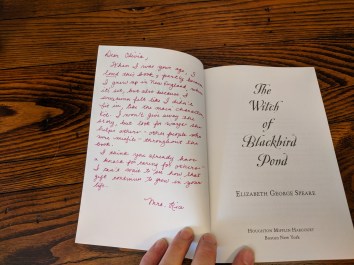 Dear Olivia,
When I was your age, I
loved this book, partly because
I grew up in New England, where
it's set, but also because I
sometimes felt like I didn't
fit in, like the main character
Kit. I won't give away the
story, but look for ways she
helps others - other people who
are misfits - throughout the
book.
I think you already have
a knack for caring for others -
I can't wait to see how that
gift continues to grow in your
life.
Mrs. Rice
The
Witch
of
Blackbird
Pond
ELIZABETH GEORGE SPEARE
HOUGHTON MIFFLIN HARCOURT
Boston New York